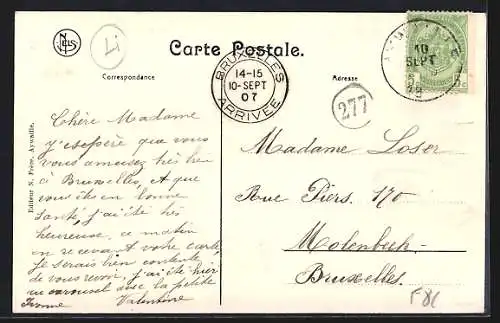 NELS
Li
Carte Postale.
Correspondance
Adresse
BRUXELLES
14-15
10-SEPT
07
ARRIVÉE
277
10
SEPT
Chère Madame
j'espère que vous
vous amusez très bien
à Bruxelles, et que
vous êtes en bonne
santé, j'ai été très
heureuse, ce matin
en recevant votre carte,
je serais bien contente
de vous revoir, j'ai été hier
au carrousel avec la petite
Yvonne Valentine
Madame Loser
Rue Piers. 170
Molenbeek-
Bruxelles.
Editeur N. Frère, Aywaille.
F8c